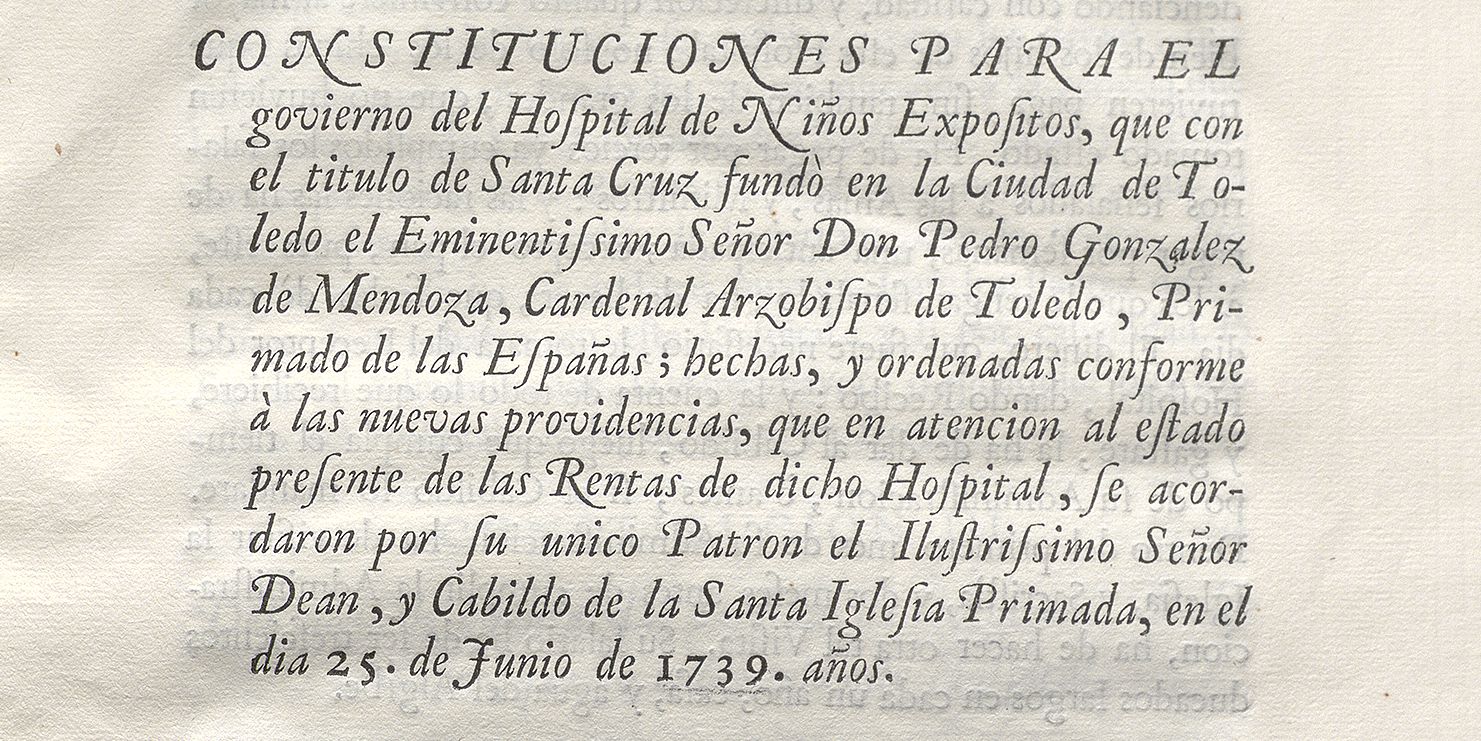 CONSTITUCIONES PARA EL
govierno del Hoſpital de Niños Expoſitos, que con
el titulo de Santa Cruz fundò en la Ciudad de To-
ledo el Eminentiſsimo Señor Don Pedro Gonzalez
de Mendoza, Cardenal Arzobiſpo de Toledo, Pri-
mado de las Eſpañas; hechas, y ordenadas conforme
à las nuevas providencias, que en atencion al eſtado
preſente de las Rentas de dicho Hoſpital, ſe acor-
daron por ſu unico Patron el Iluſtriſsimo Señor
Dean, y Cabildo de la Santa Igleſia Primada, en el
dia 25. de Junio de 1739. años.